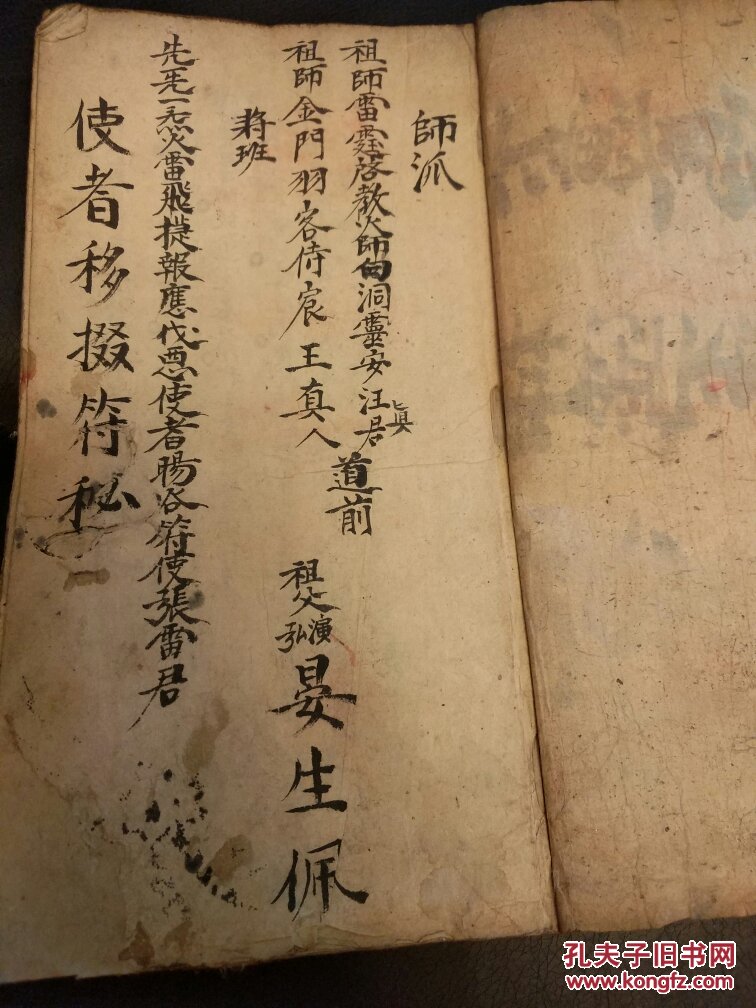 師派
祖師雷霆啓教火師白洞靈安汪君真
祖師金門羽客侍宸王真人
道前
祖父
演弘
晏生佩
将班
先天一炁火雷飛捷報應伐惡使者暘谷符使張雷君
使者移掇符秘
孔夫子旧书网
www.kongfz.com